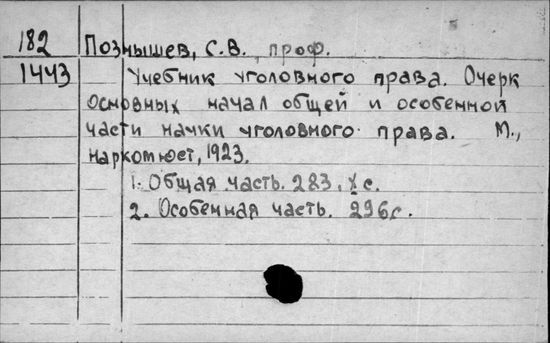 182 Познышев, С.В., проф.
1443 Учебник уголовного права. Очерк
основных начал общей и особенной
части науки уголовного права. М.,
наркомюст, 1923.
1. Общая часть. 283, X с.
2. Особенная часть. 296с.